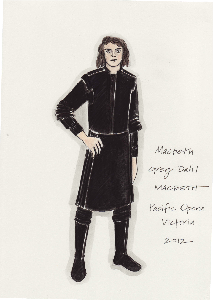 Macbeth
Greg Dahl
MACBETH
Pacific Opera
Victoria
2012